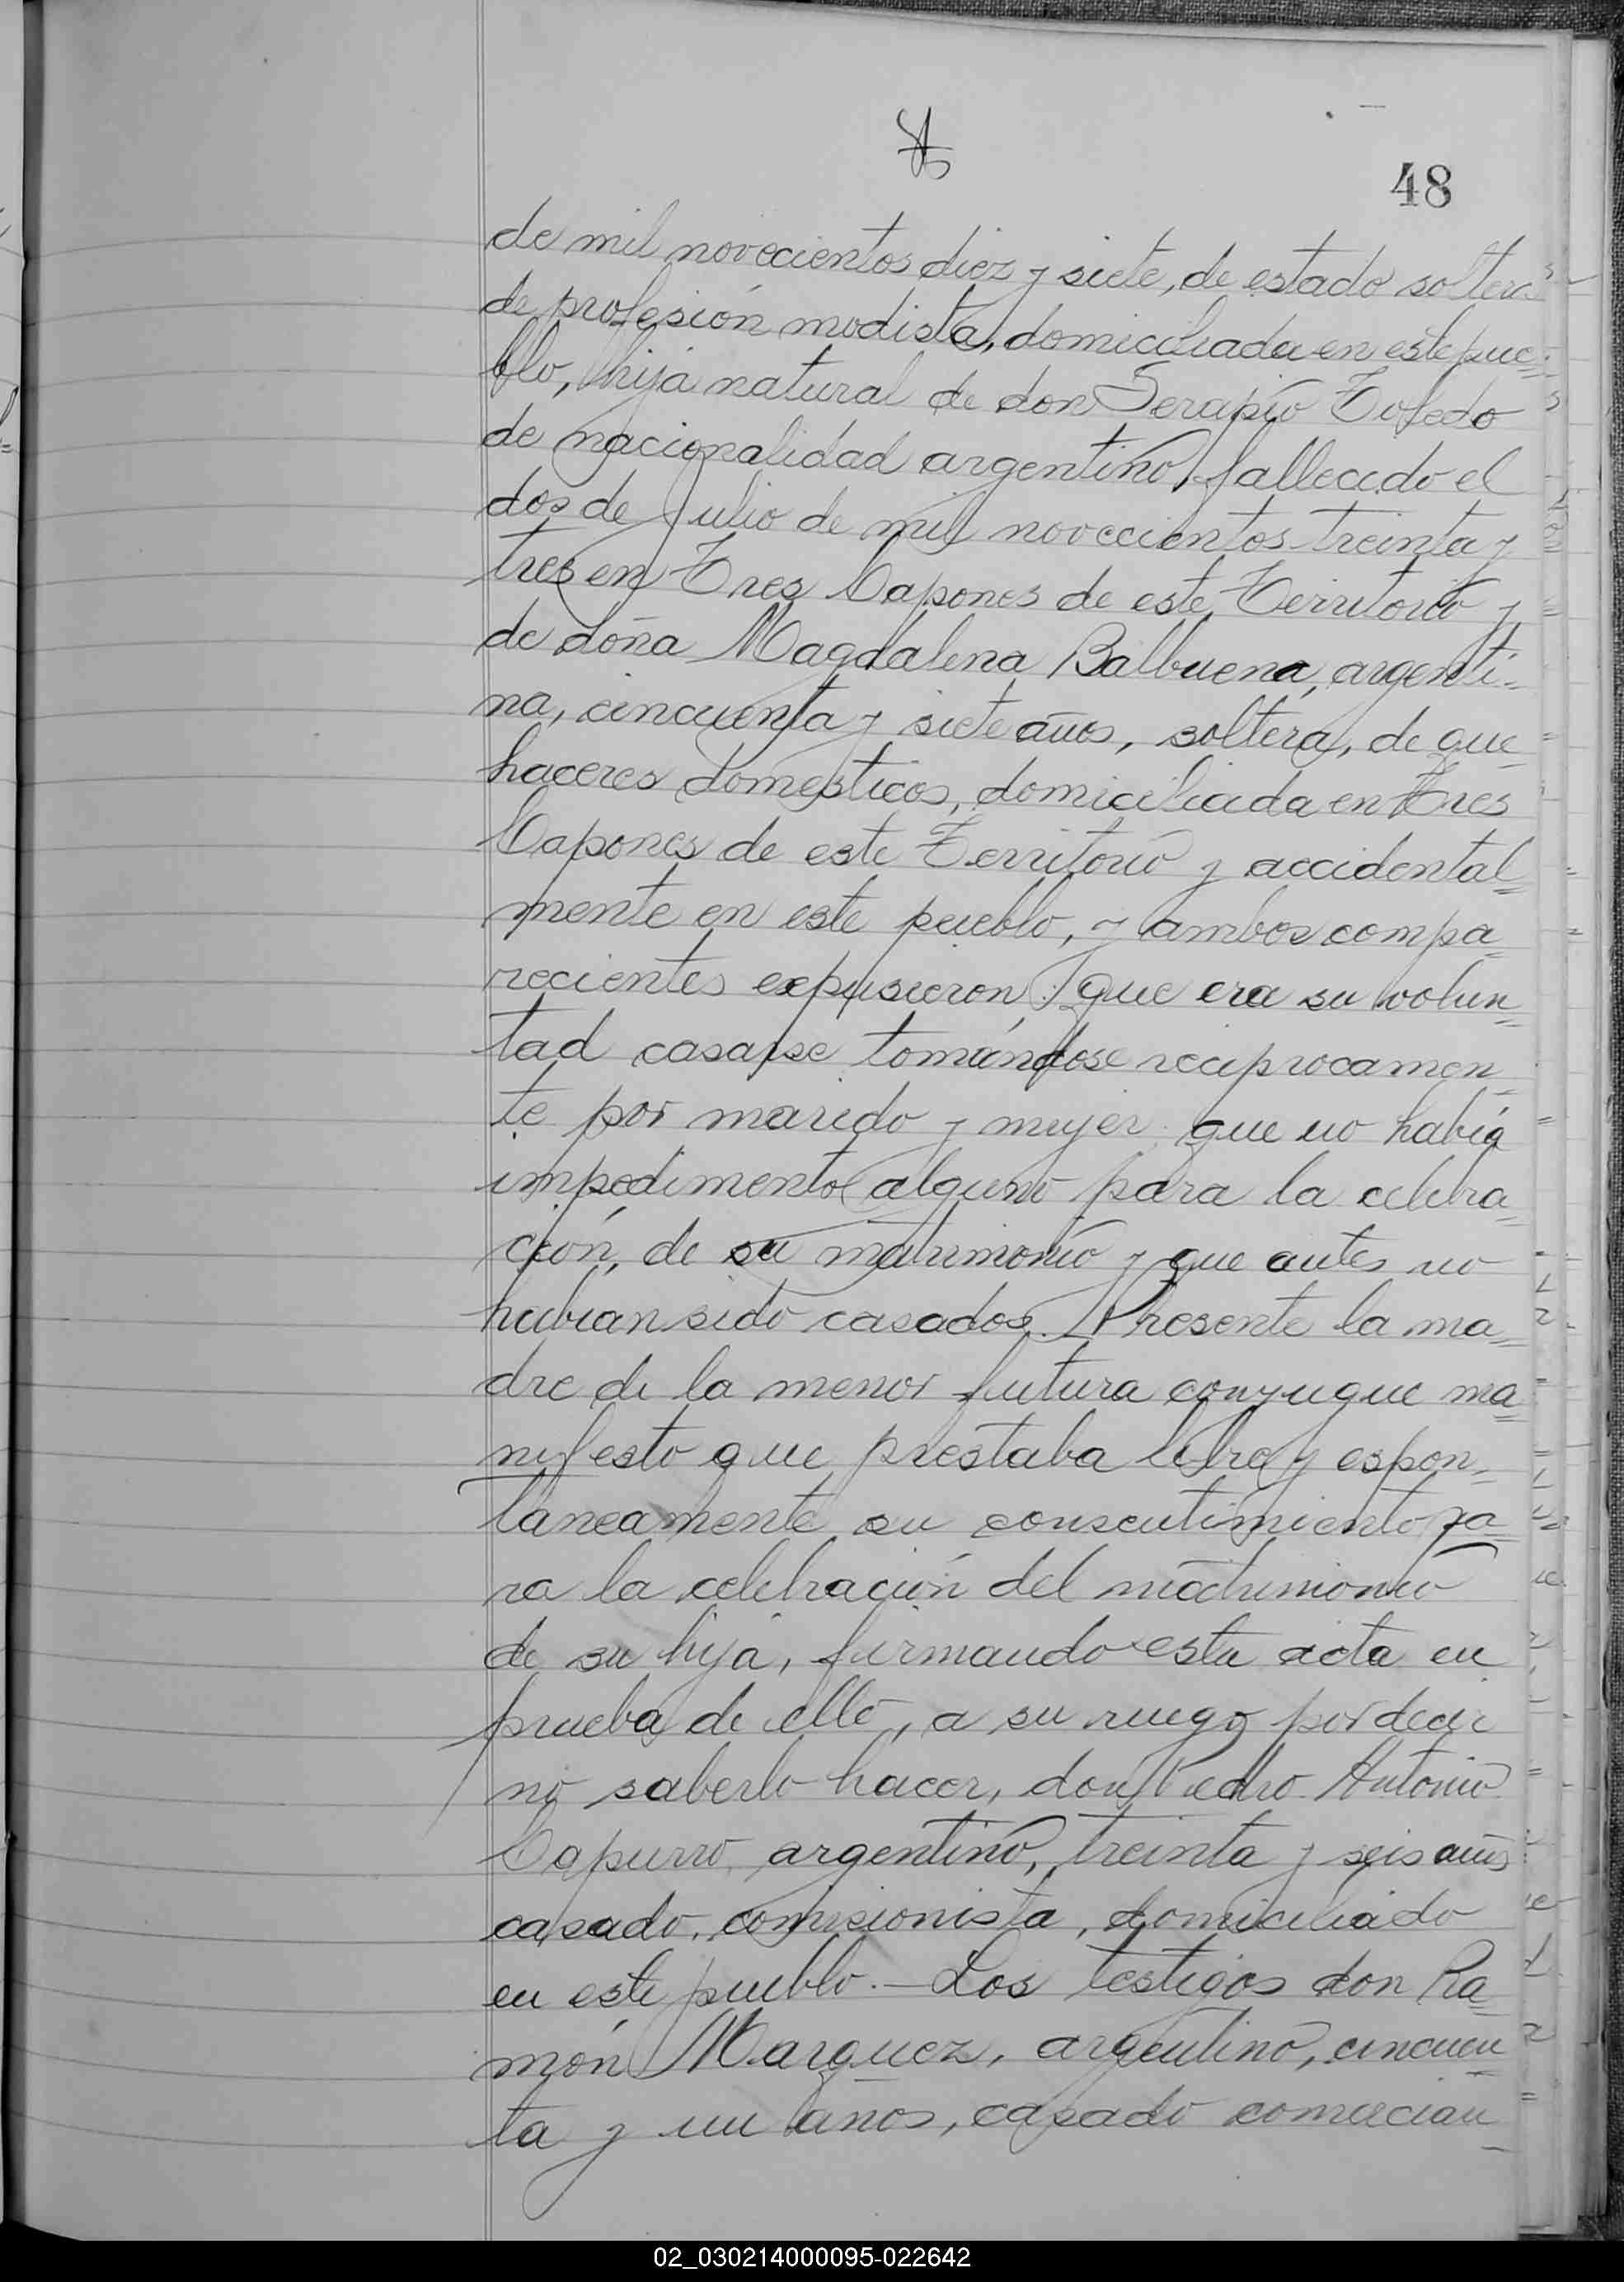 48
de mil novecientos diez y siete, de estado soltera
de profesión modista, domiciliada en este pue=
blo, hija natural de don Serapio Toledo
de nacionalidad argentino, fallecido el
dos de Julio de mil novecientos treinta y
tres en Tres Capones de este Territorio y
de doña Magdalena Balbuena, argenti=
na, cincuenta y siete años, soltera, de que=
haceres domesticos, domiciliada en Tres
Capones de este Territorio y accidental=
mente en este pueblo, y ambos compa=
recientes expusieron: que era su volun=
tad casarse tomándose reciprocamen=
te por marido y mujer: que no había
impedimento alguno para la celebra=
ción, de su matrimonio y que antes no
habian sido casados. Presente la ma=
dre de la menor futura conyugue ma=
nifesto que prestaba libre y espon=
taneamente su consentimiento pa=
ra la celebración del matrimonio
de su hija, firmando esta acta en
prueba de ello, a su ruego por decir
no saberlo hacer, don Pedro Antonio
Capurro, argentino, treinta y seis años
casado, comisionista, domiciliado
en este pueblo.- Los testigos don Ra=
món Marquez, argentino, cincuen=
ta y un años, casado comercian=
02_030214000095-022642